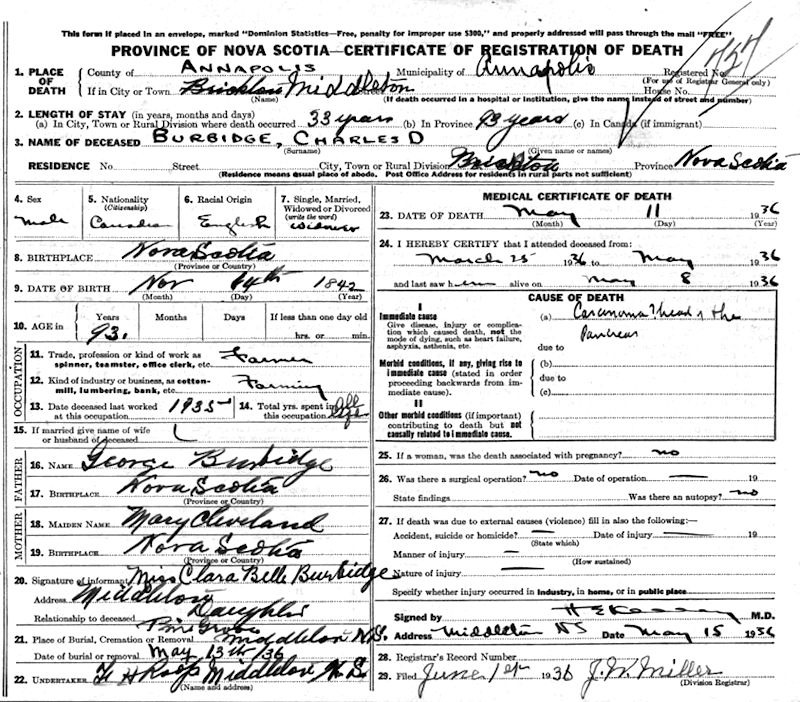 This form if placed in an envelope, marked "Dominion Statistics—Free, penalty for improper use $300," and properly addressed will pass through the mail "FREE"
PROVINCE OF NOVA SCOTIA—CERTIFICATE OF REGISTRATION OF DEATH
727
1. PLACE OF DEATH
County of ANNAPOLIS Municipality of Annapolis Registered No.
(For use of Registrar General only)
If in City or Town Brickton Middleton Street House No.
(Name) (If death occurred in a hospital or institution, give the name instead of street and number)
2. LENGTH OF STAY (in years, months and days)
(a) In City, Town or Rural Division where death occurred 33 years (b) In Province 93 years (c) In Canada (if immigrant)
3. NAME OF DECEASED BURBIDGE, CHARLES D
(Surname) (Given name or names)
RESIDENCE No. Street City, Town or Rural Division Brickton Province Nova Scotia
(Residence means usual place of abode. Post Office Address for residents in rural parts not sufficient)
4. Sex
male
5. Nationality
(Citizenship)
Canadian
6. Racial Origin
English
7. Single, Married, Widowed or Divorced
(write the word)
widower
8. BIRTHPLACE Nova Scotia
(Province or Country)
9. DATE OF BIRTH Nov 14th 1842
(Month) (Day) (Year)
10. AGE in
Years Months Days If less than one day
93. hrs. or min.
OCCUPATION
11. Trade, profession or kind of work as spinner, teamster, office clerk, etc. Farmer
12. Kind of industry or business, as cotton-mill, lumbering, bank, etc. Farming
13. Date deceased last worked at this occupation 1935
14. Total yrs. spent in this occupation All life
15. If married give name of wife or husband of deceased
FATHER
16. NAME George Burbidge
17. BIRTHPLACE Nova Scotia
(Province or Country)
MOTHER
18. MAIDEN NAME Mary Cleveland
19. BIRTHPLACE Nova Scotia
(Province or Country)
20. Signature of informant Miss Clara Belle Burbidge
Address Middleton
Relationship to deceased Daughter
21. Place of Burial, Cremation or Removal Pine Grove Middleton N.S.
Date of burial or removal May 13th/36
22. UNDERTAKER Roop Middleton N.S.
(Name and address)
MEDICAL CERTIFICATE OF DEATH
23. DATE OF DEATH May 11 1936
(Month) (Day) (Year)
24. I HEREBY CERTIFY that I attended deceased from:
March 25 1936 to May 1936
and last saw him alive on May 8 1936
CAUSE OF DEATH
I
Immediate cause
Give disease, injury or complication which caused death, not the mode of dying, such as heart failure, asphyxia, asthenia, etc.
(a) Carcinoma head of the
Pancreas
due to
Morbid conditions, if any, giving rise to immediate cause (stated in order proceeding backwards from immediate cause).
(b)
due to
(c)
II
Other morbid conditions (if important) contributing to death but not causally related to immediate cause.
25. If a woman, was the death associated with pregnancy? no
26. Was there a surgical operation? no Date of operation — 19
State findings Was there an autopsy? no
27. If death was due to external causes (violence) fill in also the following:—
Accident, suicide or homicide? — Date of injury — 19
(State which)
Manner of injury —
(How sustained)
Nature of injury —
Specify whether injury occurred in industry, in home, or in public place
Signed by M.D.
Address Middleton NS Date May 15 1936
28. Registrar's Record Number
29. Filed June 1st 1936 J. W. Miller
(Division Registrar)